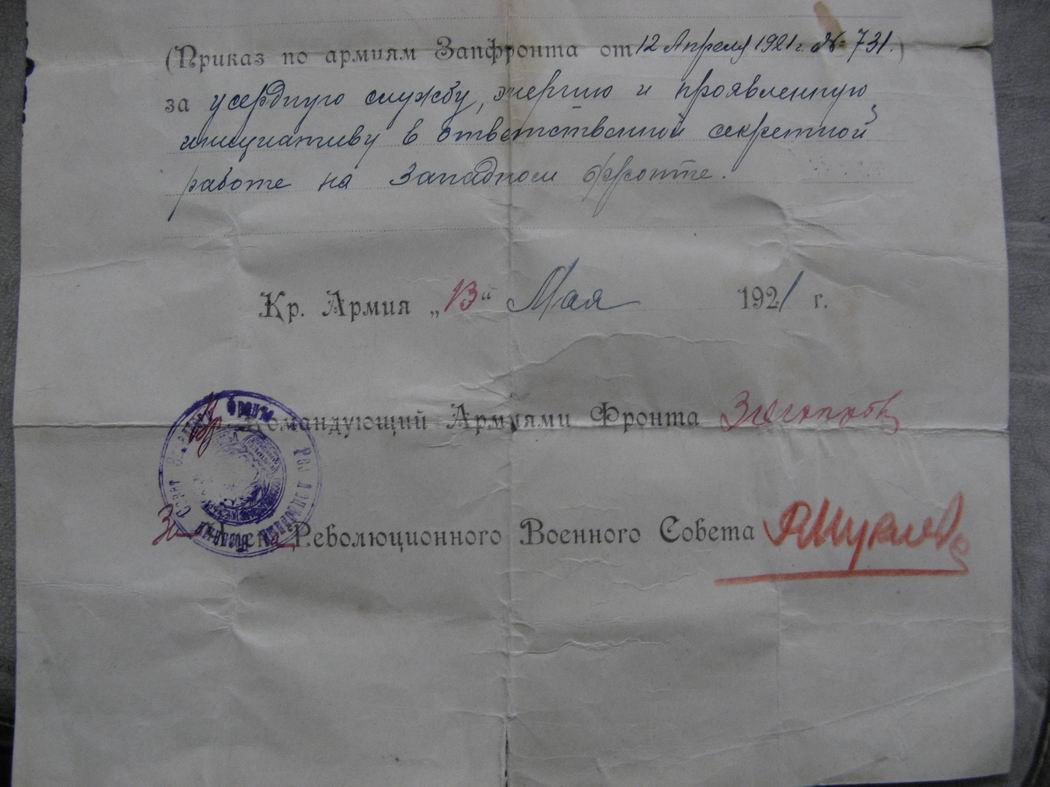 (Приказ по армиям Запфронта от 12 Апреля 1921 г. № 731.)
за усердную службу, энергию и проявленную
инициативу в ответственной секретной
работе на Западном фронте.
Кр. Армия „13" Мая 1921 г.
Командующий Армиями Фронта
Революционного Военного Совета